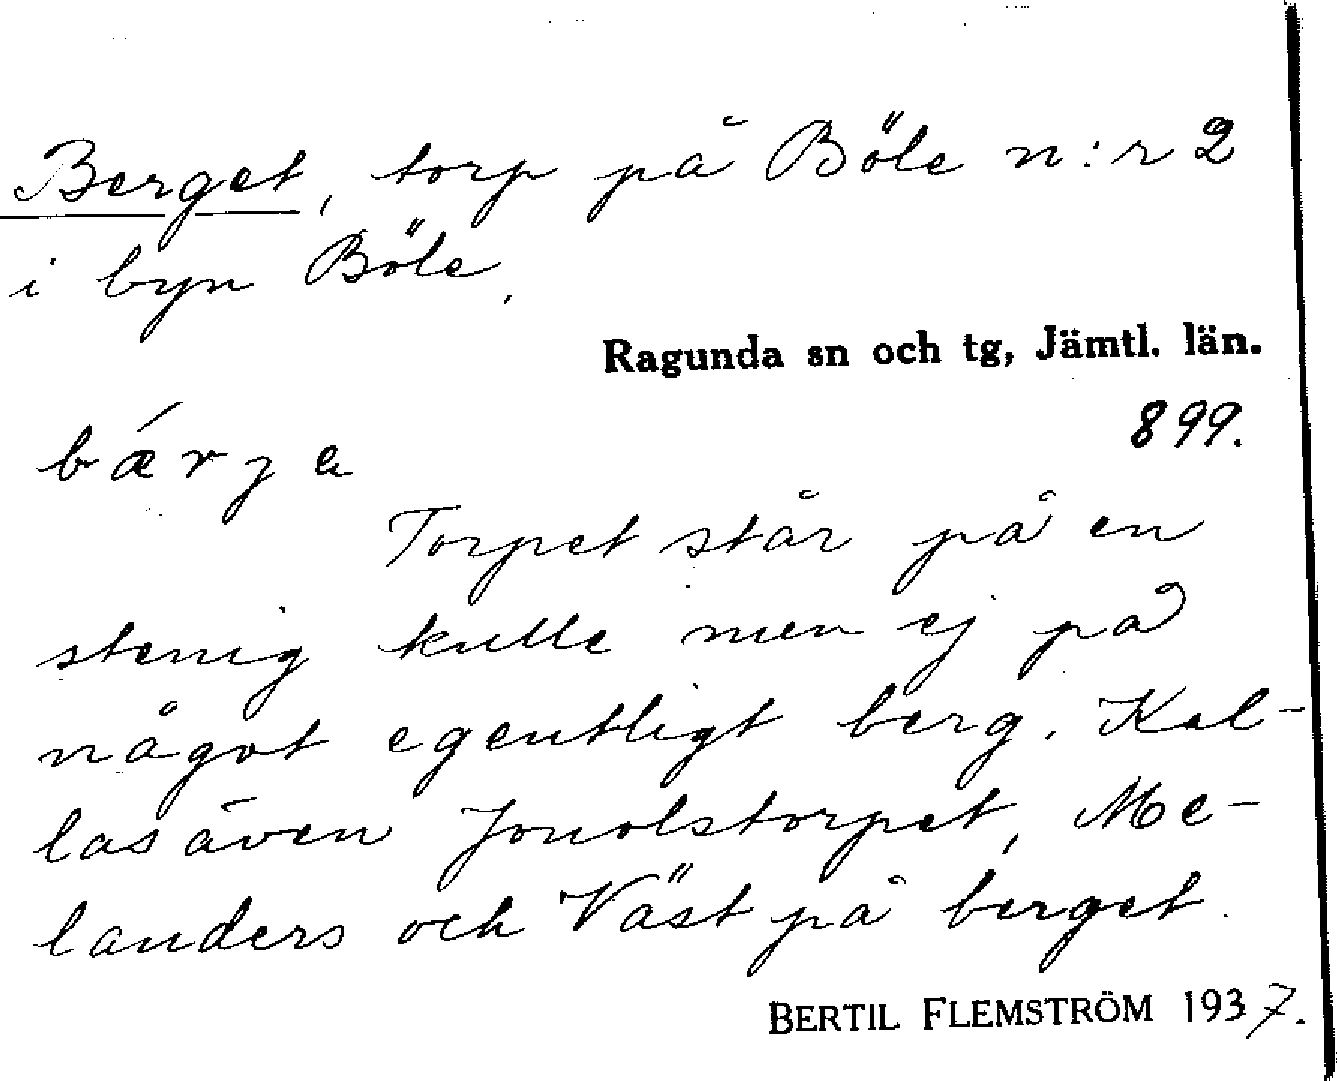 Berget, torp på Böle n:r 2
i byn Böle.
Ragunda sn och tg, Jämtl. län.
899.
bǽrγa
Torpet står på en
stenig kulle men ej på
något egentligt berg. Kal-
las även Jonolstorpet, Me-
landers och Väst på berget.
BERTIL FLEMSTRÖM 1937.